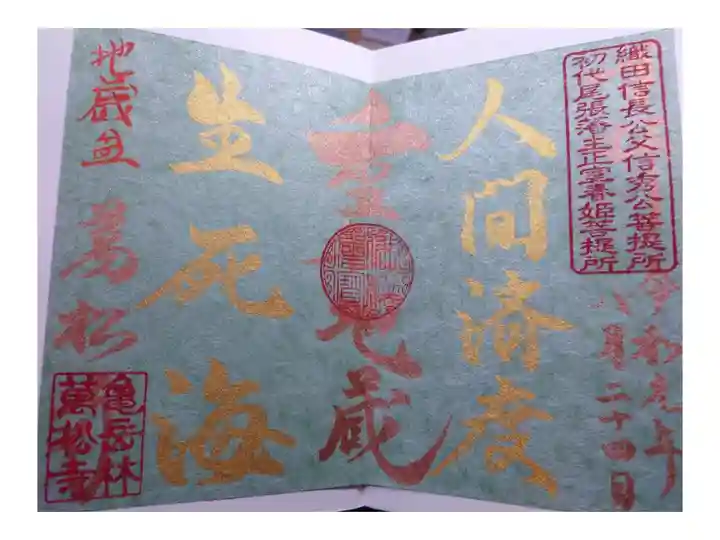 織田信長公父信秀公菩提所
初代尾張藩主正室春姫菩提所
令和元年
八月二十四日
人間済度
重 地蔵
生死海
地蔵盆
萬松
亀岳林
萬松寺